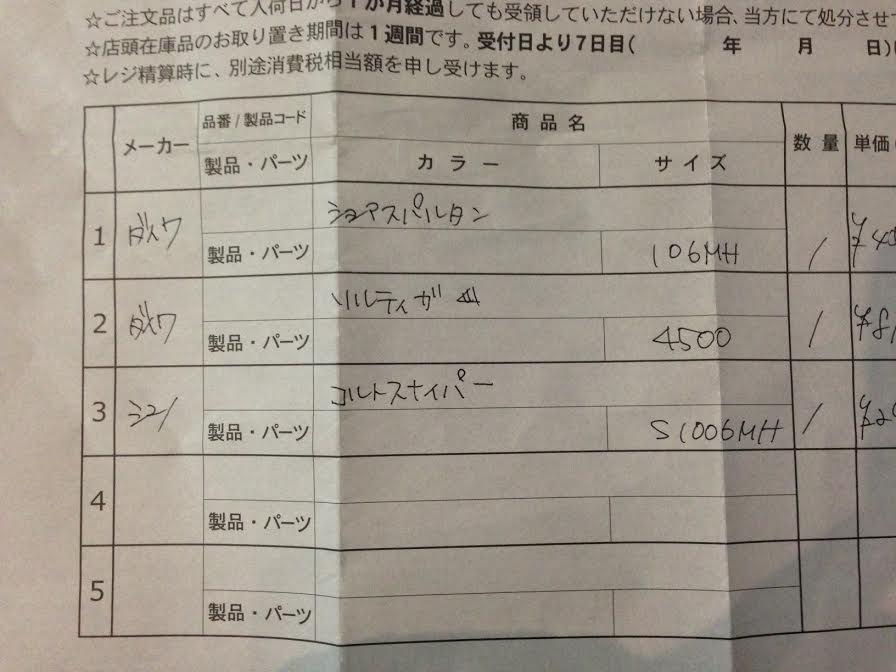 ☆ご注文品はすべて入荷日から1か月経過しても受領していただけない場合、当方にて処分させ
☆店頭在庫品のお取り置き期間は1週間です。受付日より7日目(　　年　　月　　日)
☆レジ精算時に、別途消費税相当額を申し受けます。
メーカー 品番/製品コード 商品名 数量 単価
製品・パーツ カラー サイズ
1 ダイワ ショアスパルタン
製品・パーツ 106MH 1 ¥40
2 ダイワ ソルティガ
製品・パーツ 4500 1 ¥8
3 シマノ コルトスナイパー
製品・パーツ S1006MH 1 ¥2
4
製品・パーツ
5
製品・パーツ